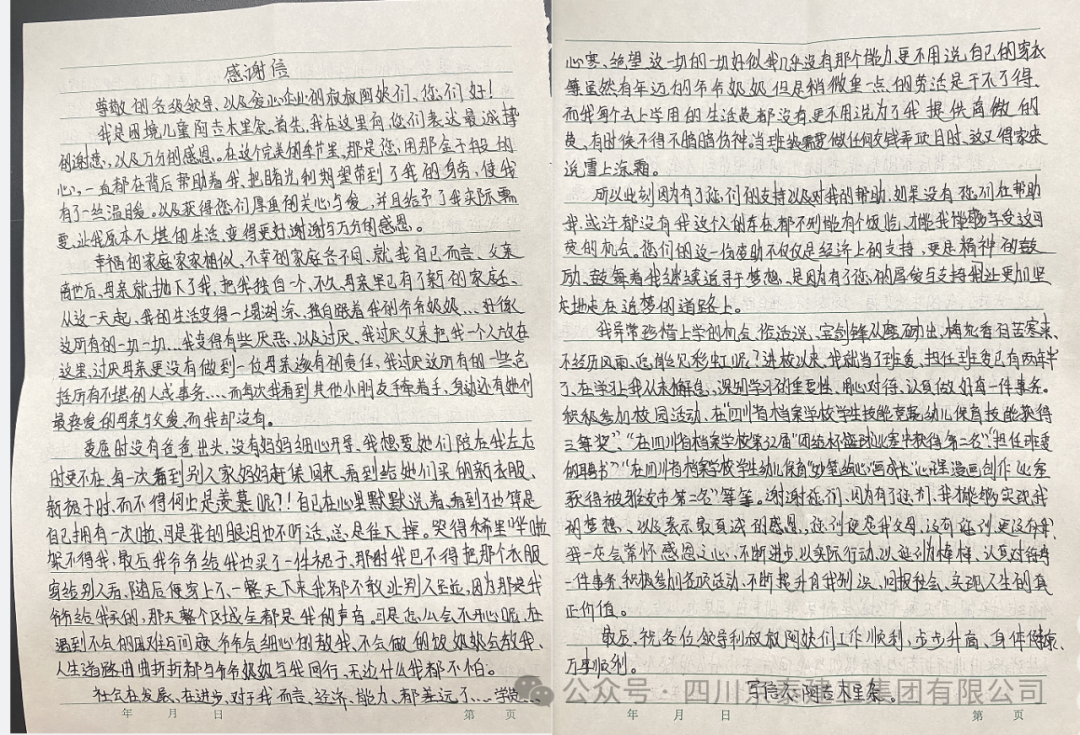 感谢信
尊敬的各级领导、以及爱心企业的叔叔阿姨们、您们好!
我是困境儿童阿吉木里杂。首先,我在这里向您们表达最诚挚
的谢意,以及万分的感恩。在这个完美的季节里,那是您,用那金子般的
心,一直都在背后帮助着我,把阳光和期望带到了我的身旁,使我
有了一丝温暖。以及获得您们厚重的关心与爱,并且给予了我实际需
要,让我原本不堪的生活,变得更好谢谢与万分的感恩。
幸福的家庭家家相似,不幸的家庭各不同、就我自己而言、父亲
离世后、母亲就抛下了我,把我独自一个,不久母亲里已有了新的家庭、
从这一天起、我的生活变得一塌湖涂、独自跟着我的爷爷奶奶……好像
这所有的一切一切…我变得有些厌恶、以及讨厌、我讨厌父亲把我一个人放在
这里,讨厌母亲更没有做到一位母亲该有的责任,我讨厌这所有的一些包
括所有不堪的人或事务……而每次我看到其他小朋友手牵着手,身边还有她们
最亲爱的母亲与父爱而我却没有。
委屈时没有爸爸出头,没有妈妈细心开导、我想要她们陪在我左右
时更不在、每一次看到别人家妈妈赶集回来、看到给她们买的新衣服、
新裙子时、而不得何止是羡慕呢?!自己在心里默默说着、看到了也算是
自己拥有一次啦,可是我的眼泪也不听话,总是往下掉。哭得稀里哗啦
架不得我、最后我爷爷给我也买了一件裙子、那时我巴不得把那个衣服
穿给别人看、随后便穿上了一整天下来我都不敢让别人碰,因为那是我
爷爷给我买的,那天整个区域全都是我的声音。可是怎么会不开心呢、在
遇到不会的困难与问题、爷爷会细心的教我、不会做的饭奶奶会教我、
人生道路曲曲折折都与爷爷奶奶与我同行、无论什么我都不怕。
社会在发展、在进步、对于我而言、经济、能力、都差远了…学费…
年 月 日 第 页
心寒、绝望这一切的一切好似我几乎没有那个能力、更不用说自己的家农
等虽然有年迈的爷爷奶奶但是稍微重一点的劳活是干不了得、
而我每个去上学用的生活费都没有、更不用说为了我提供高傲的
费、有时候不得不暗暗伤神。当班我需要做任何交钱买项目时、这又得家里
说雪上添霜。
所以此刻因为有了您们的支持以及对我的帮助、如果没有您们在帮助
我、或许都没有我这个人的存在、都不可能有个饭临、才能我慢慢享受这可
贵的机会。您们的这一份资助不仅仅是经济上的支持,更是精神的鼓
励、鼓舞着我继续追寻于梦想、是因为有了您的厚爱与支持我让更加坚
定地走在追梦的道路上。
我异常珍惜上学的机会、俗话说、宝剑锋从磨砺出,梅花香自苦寒来、
不经历风雨、怎能见彩虹呢?进校以来、我就当了班委、担任班委已有两年半
了、在学习上我从未懈怠、深知学习的重要性、用心对待、认真做好每一件事务。
积极参加校园活动、在“四川省档案学校学生技能竞赛幼儿保育技能获得
三等奖”、“在四川省档案学校第22届“团结杯篮球比赛中获得第二名”“担任班委
的聘书”“在四川省档案学校学生幼儿保育“妙笔绘心”画成长”心理漫画创作比赛
获得被雅安市第二名”等等。谢谢您们、因为有了您们、我才能够实现我
的梦想、以及表示最真诚的感恩,您们便是我父母、没有您们更没有我、
我一定会常怀感恩之心、不断进步、以实际行动、以您们为榜样、认真对待每
一件事务积极参加各项活动、不断提升自我知识、回报社会、实现人生的真
正价值。
最后、祝各位领导和叔叔阿姨们工作顺利、步步升高、身体健康、
万事顺利。
写信人:阿吉木里杂。
年 月 日 第 页
公众号·四川东泰建工集团有限公司